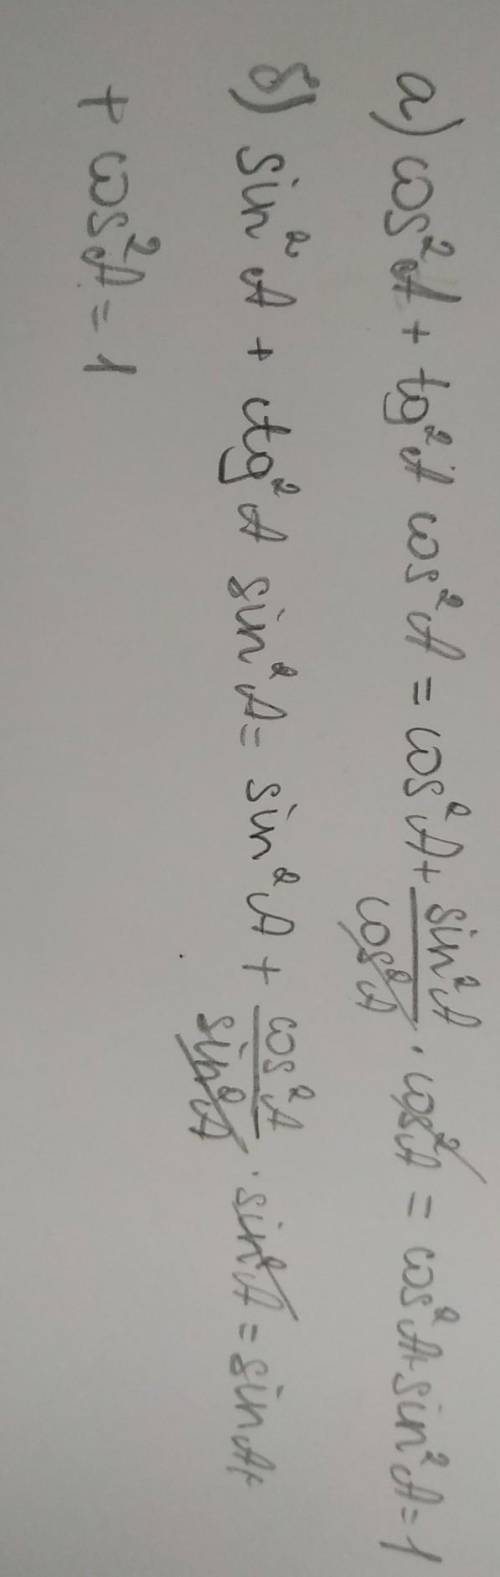 а) cos²A + tg²A cos²A = cos²A + sin²A/cos²A · cos²A = cos²A + sin²A = 1
б) sin²A + ctg²A sin²A = sin²A + cos²A/sin²A · sin²A = sin A +
+ cos²A = 1